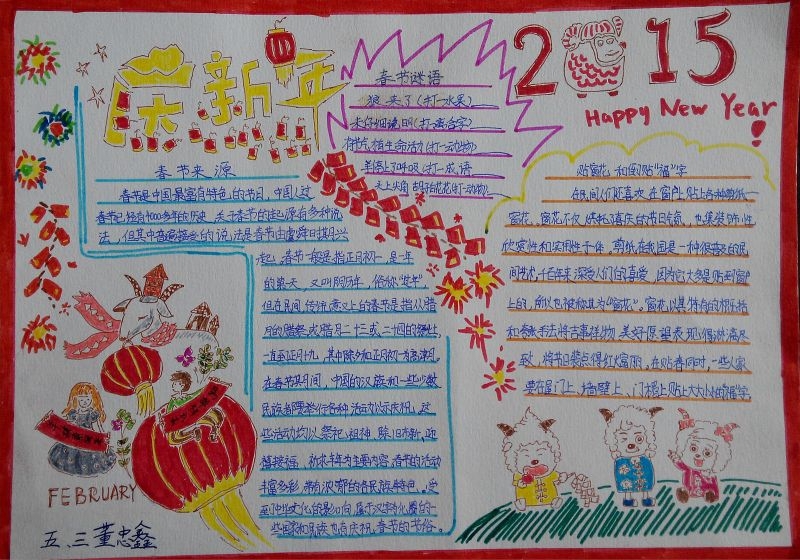 庆新年
春节来源
春节是中国最富有特色的节日,中国人过
春节已经有4000多年的历史,关于春节的起源有多种说
法,但其中普遍接受的说法是春节由虞舜时期兴
起。春节一般是指正月初一,是一年
的第天,又叫阴历年,俗称"过年"
但在民间,传统意义上的春节是指从腊
月的腊祭或腊月二十三或二十四的祭灶,
一直到正月十九,其中除夕和正月初一为高潮。
在春节期间,中国的汉族和一些少数
民族都要举行各种活动以示庆祝,这
些活动均以祭祀祖神、除旧布新、迎
禧接福、祈求丰年为主要内容,春节的活动
丰富多彩,带有浓郁的各民族特色。受
到中华文化的影响,属于汉字文化圈的一
些国家和民族也有庆祝春节的节俗。
春节谜语
狼来了(打一水果)
未作烟说明(打一离合字)
有节气植生命活动(打一动物)
羊停止了呼吸(打一成语
天上尖角 胡子白花花(打一动物)
2015
Happy New Year!
贴窗花和倒贴"福"字
在民间人们还喜欢在窗户上贴上各种剪纸—
窗花。窗花不仅烘托了喜庆的节日气氛,也集装饰性
欣赏性和实用性于一体。剪纸在我国是一种很普及的民
间艺术,千百年来深受人们的喜爱,因为它大多是贴到窗户
上的,所以也被称其为"窗花"。窗花以其特有的概括
和夸张手法将吉事祥物、美好愿望表现的淋漓尽
致,将节日装点得红火富丽,在贴春同时,一些人家
要在屋门上、墙壁上、门楣上贴上大大小小的福字。
FEBRUARY
五、三董忠鑫